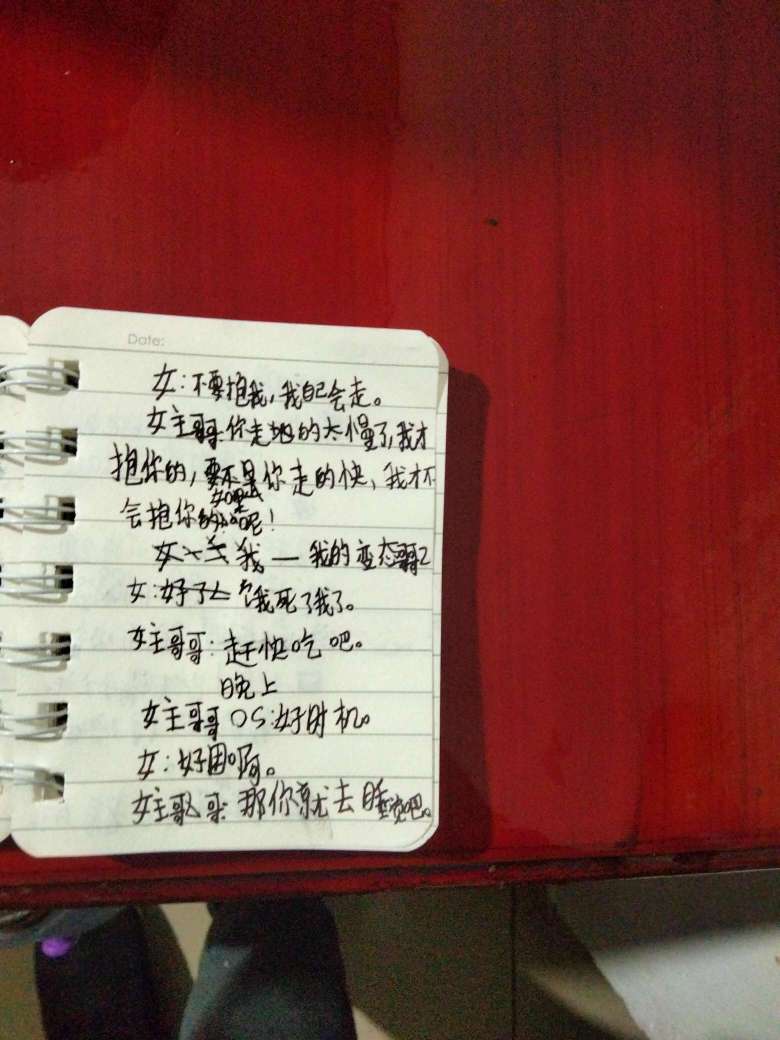 Date:
女:不要抱我,我自己会走。
女主哥哥你走地的太慢了,我才
抱你的,要不是你走的快,我才不
会抱你的呢!
我—我的变态哥
女: 饿死了我了。
女主哥哥:赶快吃吧。
晚上
女主哥哥 OS:好时机。
女:好困啊。
女主哥哥:那你就去睡觉吧。